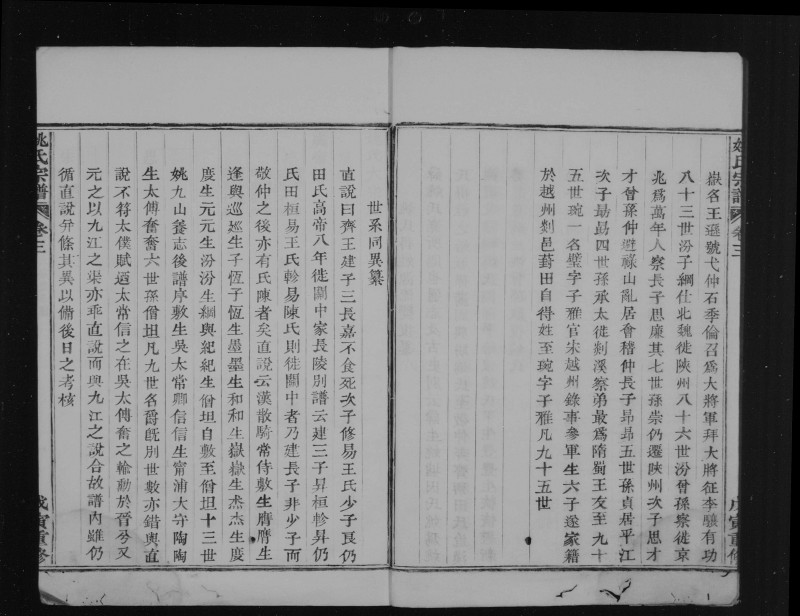 姚氏宗譜 卷三
嶽名王遜號弋仲石季倫召為大將軍拜大將征李驤有功
八十三世汾子綱仕北魏徙陝州八十六世汾曾孫察徙京
兆為萬年人察長子思廉其七世孫崇仍遷陝州次子思才
才曾孫仲避祿山亂居會稽仲長子昻昻五世孫貞居平江
次子勗勗四世孫承太徙剡溪察弟最為隋蜀王友至九十
五世琬一名璧字子雅官宋越州錄事參軍生六子遂家籍
於越州剡邑葑田自得姓至琬字子雅凡九十五世
戊寅重修
世系同異纂
直說曰齊王建子三長嘉不食死次子修易王氏少子㒷仍
田氏高帝八年徙關中家長陵別譜云建三子昇桓軫昇仍
氏田桓易王氏軫易陳氏則徙關中者乃建長子非少子而
敬仲之後亦有氏陳者矣直說云漢散騎常侍敷生膺膺生
逢與巡巡生子恆子恆生墨墨生和和生嶽嶽生杰杰生度
度生元元生汾汾生綱與紀紀生僧坦自敷至僧坦十三世
姚九山養志後譜序敷生吳太常卿信信生甯浦大守陶陶
生太傅奮奮六世孫僧坦凡九世名爵既別世數亦錯與直
說不符太僕賦迺太常信之在吳太傅奮之輸勳於晉兮又
元之以九江之渠亦乖直說而與九江之說合故譜內雖仍
循直說弁條其異以備後日之考核
姚氏宗譜 卷三
戊寅重修